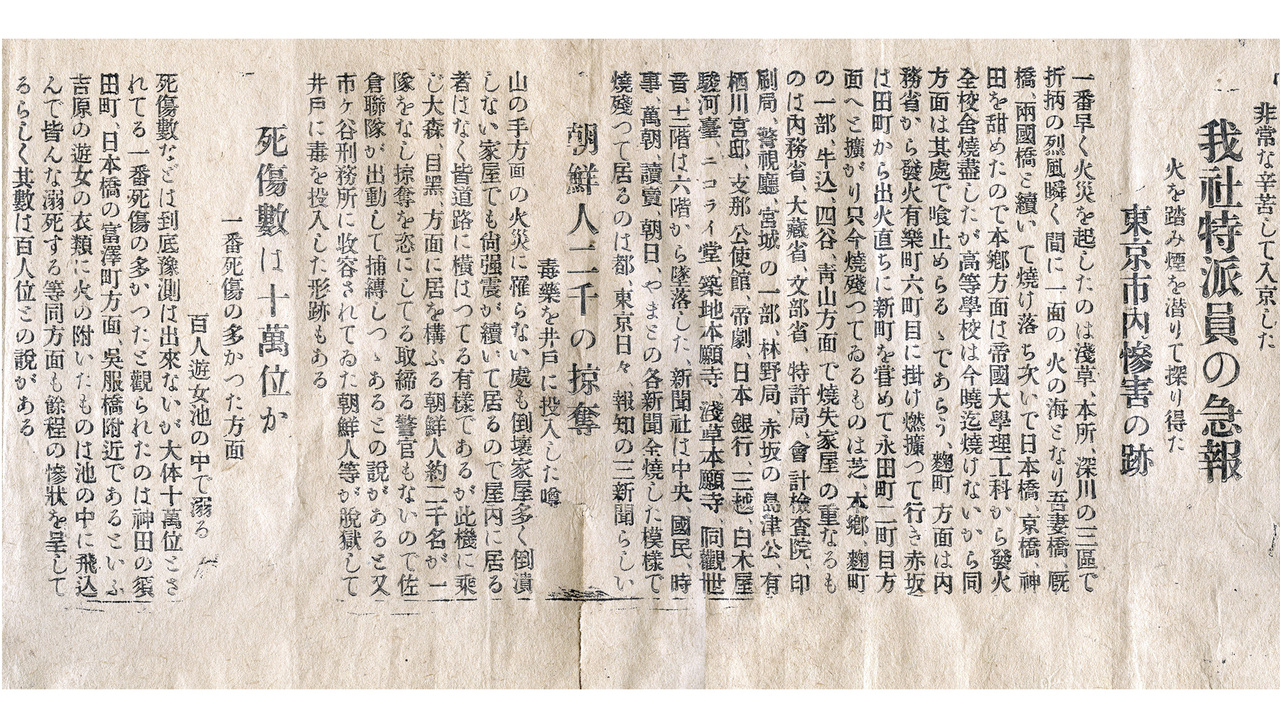 非常な辛苦して入京した
我社特派員の急報
火を踏み煙を潜りて探り得た
東京市内慘害の跡
一番早く火災を起したのは淺草、本所、深川の三區で
折柄の烈風瞬く間に一面の火の海となり吾妻橋、厩
橋、兩國橋と續いて燒け落ち次いで日本橋、京橋、神
田を甜めたので本鄕方面は帝國大學理工科から發火
全校舍燒盡したが高等學校は今曉迄燒けないから同
方面は其處で喰止めらるゝであらう、麴町方面は內
務省から發火有樂町六町目に掛け燃擴つて行き赤坂
は田町から出火直ちに新町を甞めて永田町二町目方
面へと擴がり只今燒殘つてゐるものは芝、本鄕、麴町
の一部、牛込、四谷、靑山方面で燒失家屋の重なるも
のは內務省、大藏省、文部省、特許局、會計檢査院、印
刷局、警視廳、宮城の一部、林野局、赤坂の島津公、有
栖川宮邸、支那公使館、帝劇、日本銀行、三越、白木屋
駿河臺、ニコライ堂、築地本願寺、淺草本願寺、同觀世
音、十二階は六階から墜落した、新聞社は中央、國民、時
事、萬朝、讀賣、朝日、やまとの各新聞全燒した模樣で
燒殘つて居るのは都、東京日々、報知の三新聞らしい
朝鮮人二千の掠奪
毒藥を井戶に投入した噂
山の手方面の火災に罹らない處も倒壞家屋多く倒潰
しない家屋でも尙强震が續いて居るので屋內に居る
者はなく皆道路に橫はつてる有樣であるが此機に乘
じ大森、目黑、方面に居を構ふる朝鮮人約二千名が一
隊をなし掠奪を恣にしてる取締る警官もないので佐
倉聯隊が出動して捕縛しつゝあるとの說があると又
市ヶ谷刑務所に收容されてゐた朝鮮人等が脫獄して
井戶に毒を投入した形跡もある
死傷數は十萬位か
一番死傷の多かつた方面
百人遊女池の中で溺る
死傷數などは到底豫測は出來ないが大体十萬位とさ
れてる一番死傷の多かつたと觀られたのは神田の須
田町、日本橋の富澤町方面、吳服橋附近であるといふ
吉原の遊女の衣類に火の附いたものは池の中に飛込
んで皆んな溺死する等同方面も餘程の慘狀を呈して
るらしく其數は百人位との說がある